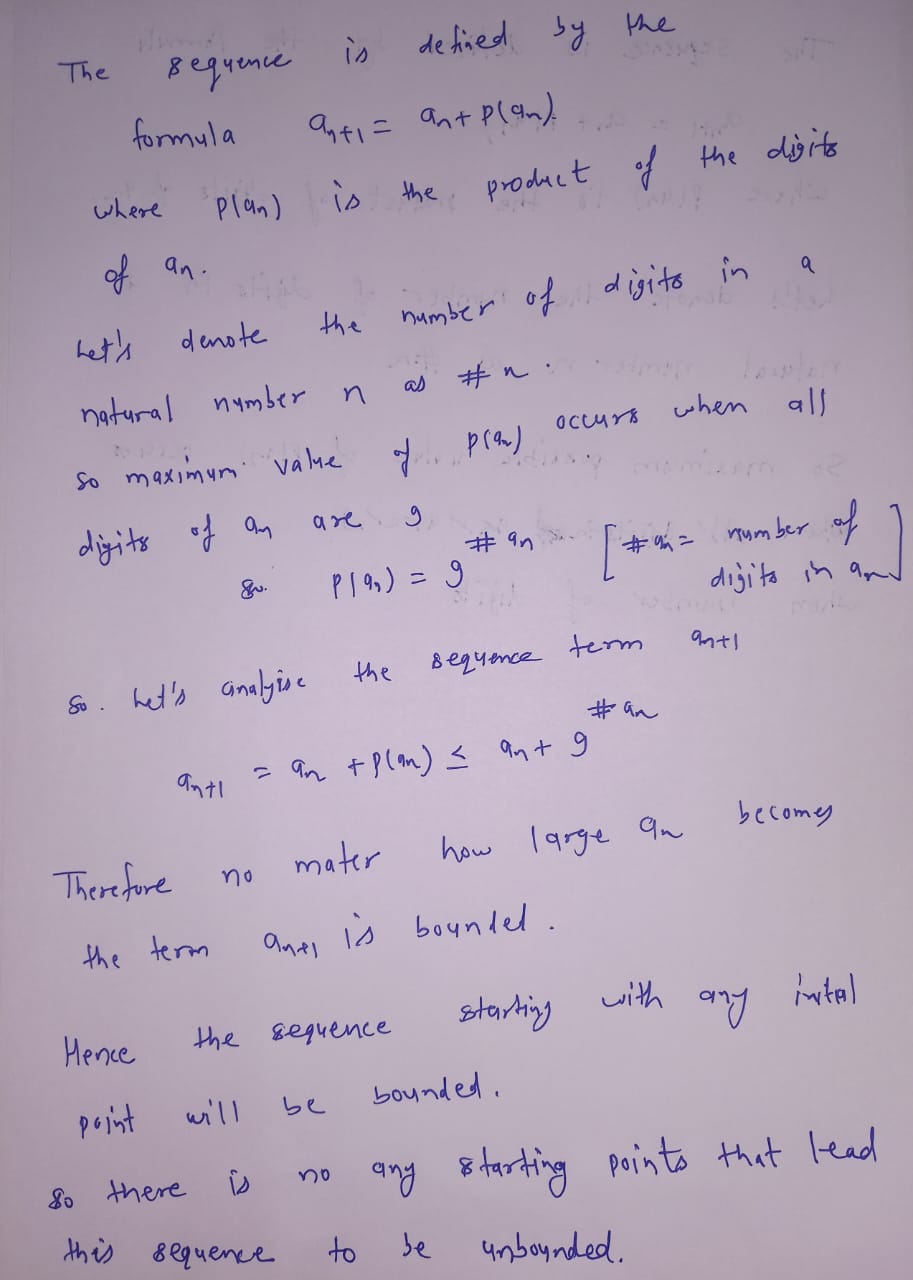 The sequence is defined by the
formula a_{n+1} = a_n + P(a_n).
where P(a_n) is the product of the digits
of a_n.
Let's denote the number of digits in a
natural number n as #n.
So maximum value of P(a_n) occurs when all
digits of a_n are 9
So. P(a_n) = 9^{#a_n} [#a_n = number of
digits in a_n]
So. Let's analyise the sequence term a_{n+1}
a_{n+1} = a_n + P(a_n) ≤ a_n + 9^{#a_n}
Therefore no mater how large a_n becomes
the term a_{n+1} is bounded.
Hence the sequence starting with any intal
point will be bounded.
So there is no any starting points that lead
this sequence to be unbounded.